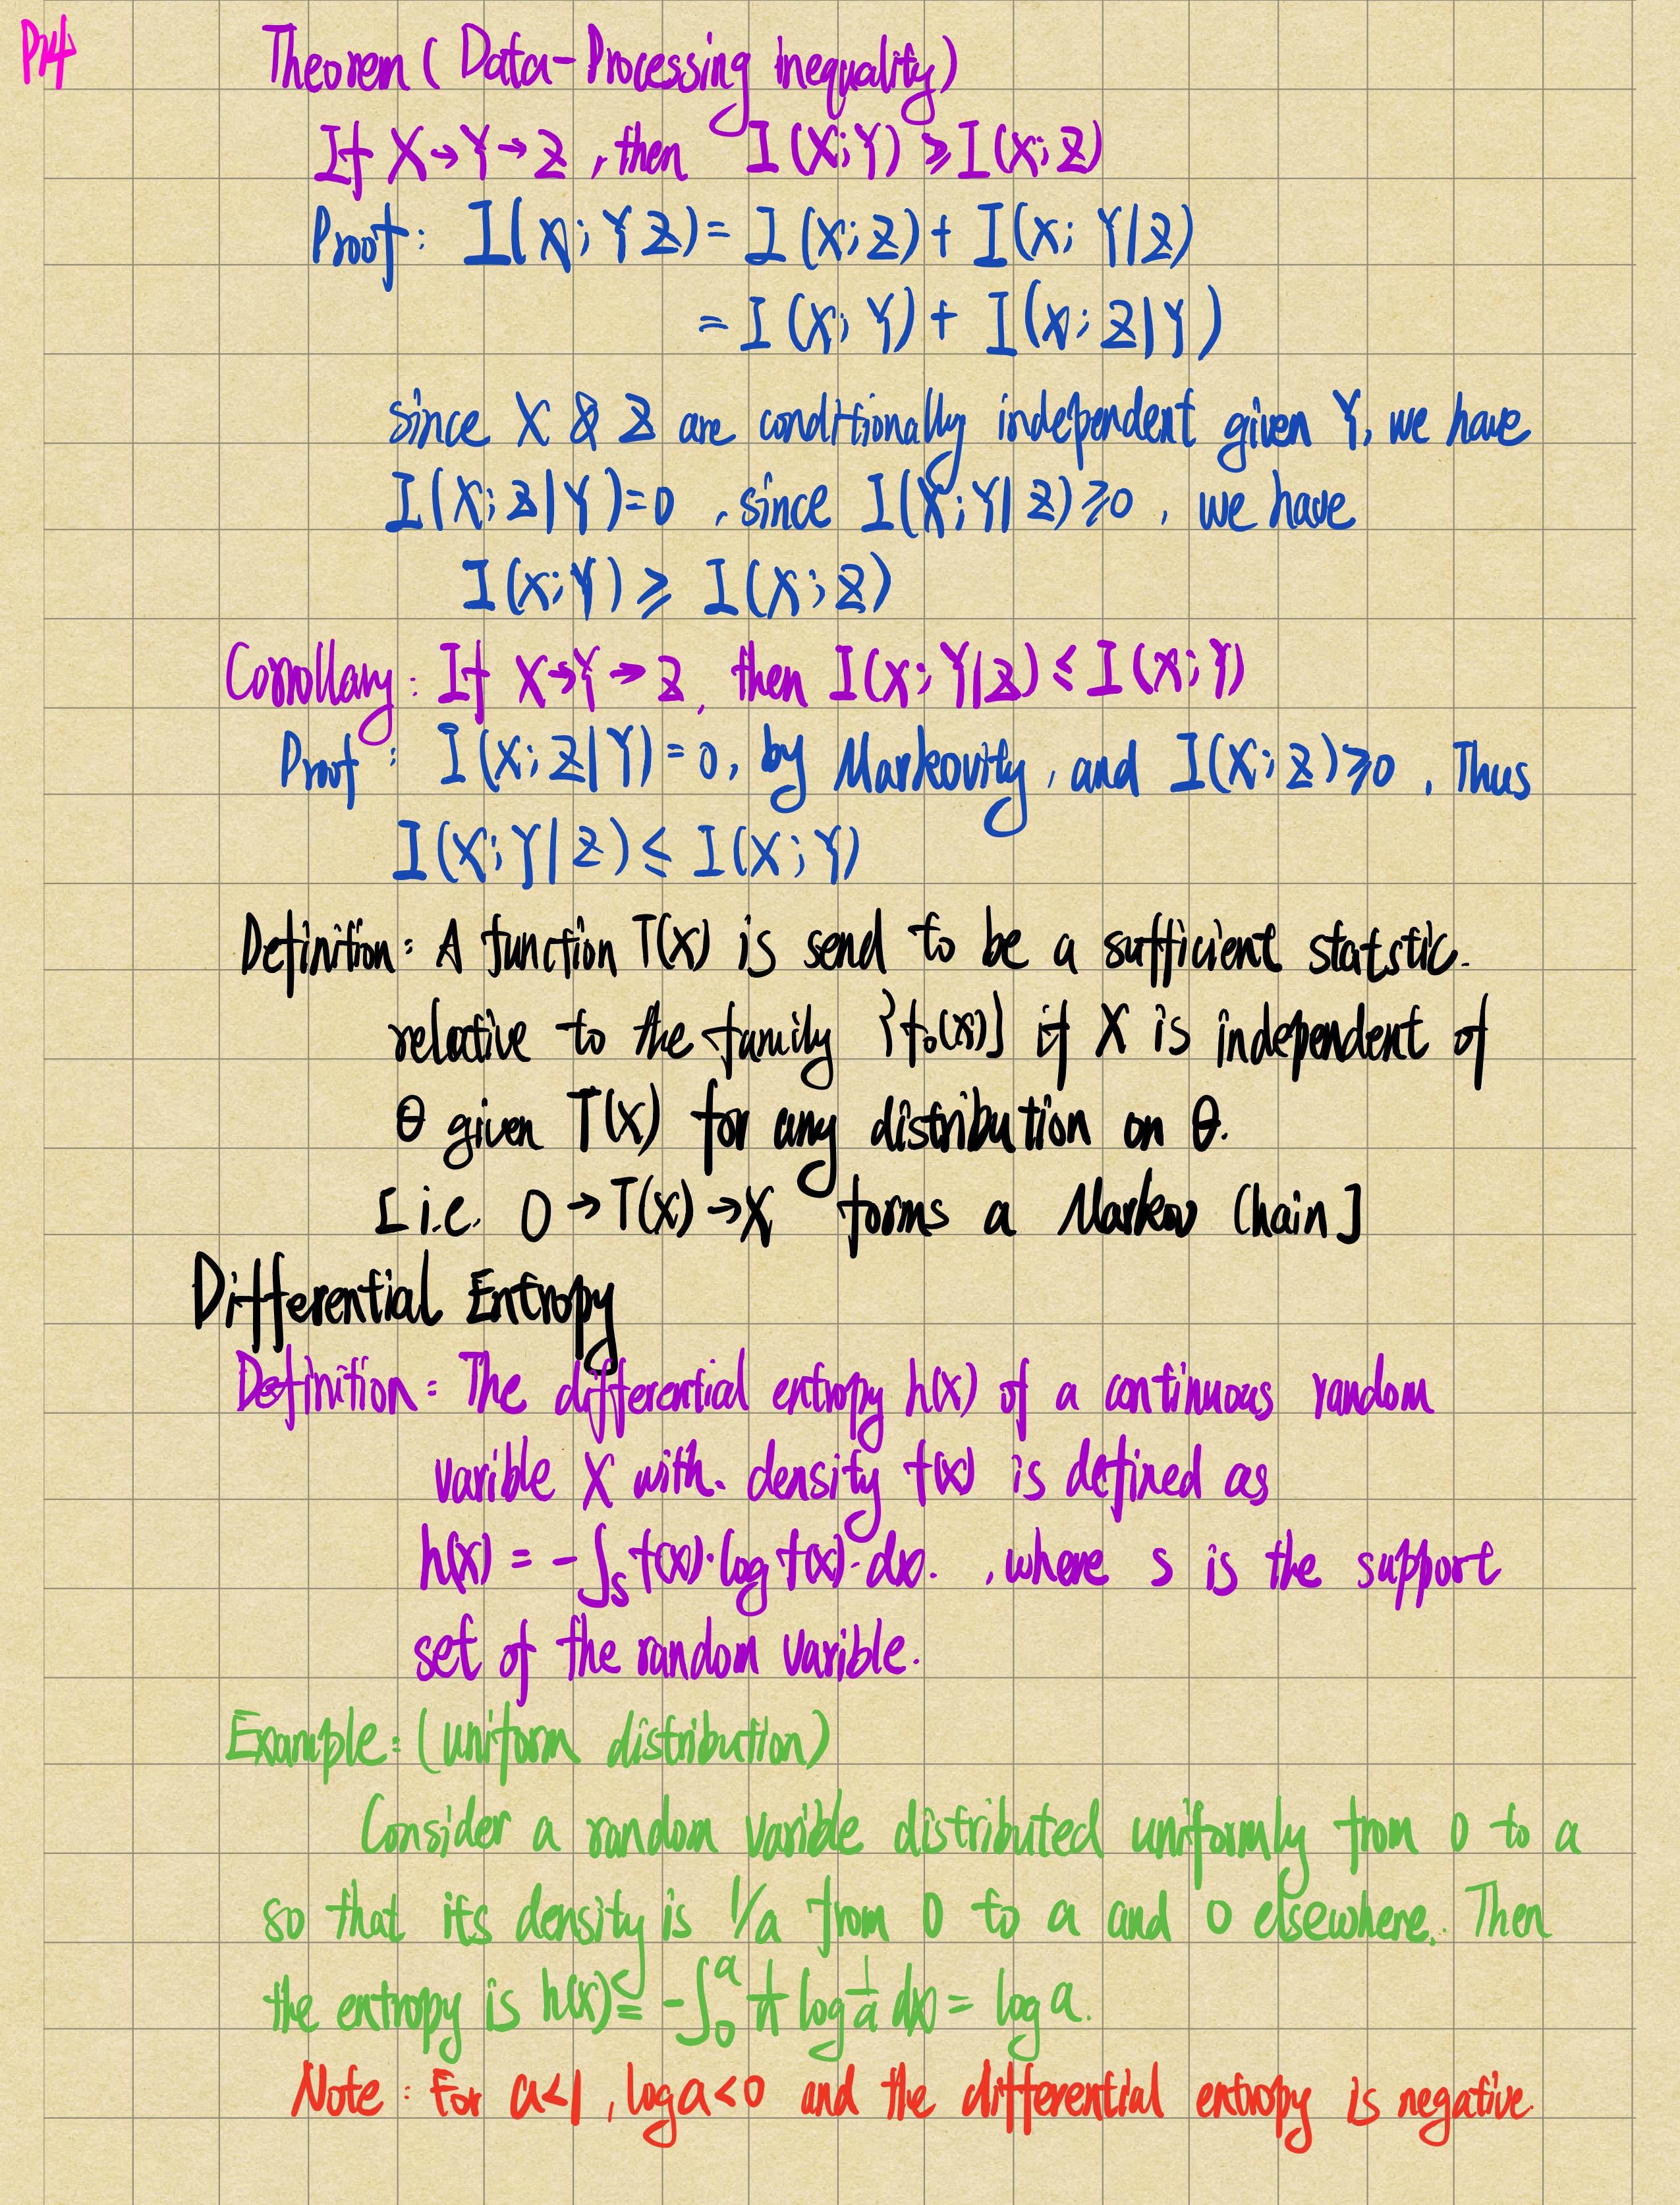 P14
Theorem ( Data-Processing inequality)
If X→Y→Z, then I(X;Y) ≥ I(X;Z)
Proof: I(X; Y Z) = I(X;Z) + I(X; Y|Z)
= I(X; Y) + I(X; Z|Y)
since X & Z are conditionally independent given Y, we have
I(X; Z|Y)=0, since I(X;Y|Z)≥0, we have
I(X;Y) ≥ I(X;Z)
Corrollary: If X→Y→Z, then I(X; Y|Z) ≤ I(X; Y)
Proof: I(X; Z|Y) = 0, by Markovity, and I(X; Z)≥0, Thus
I(X; Y|Z) ≤ I(X; Y)
Definition: A function T(X) is send to be a sufficient statstic.
relative to the family {fθ(x)} if X is independent of
θ given T(X) for any distribution on θ.
[i.e. θ→T(X)→X forms a Markov Chain]
Differential Entropy
Definition: The differential entropy h(X) of a continuous random
varible X with. density f(x) is defined as
h(X) = -∫_S f(x)·log f(x)·dx. , where S is the support
set of the random varible.
Example: (uniform distribution)
Consider a random varible distributed uniformly from 0 to a
so that its density is 1/a from 0 to a and 0 elsewhere. Then
the entropy is h(X) = -∫_0^a 1/a log 1/a dx = log a.
Note: For a<1, log a<0 and the differential entropy is negative.